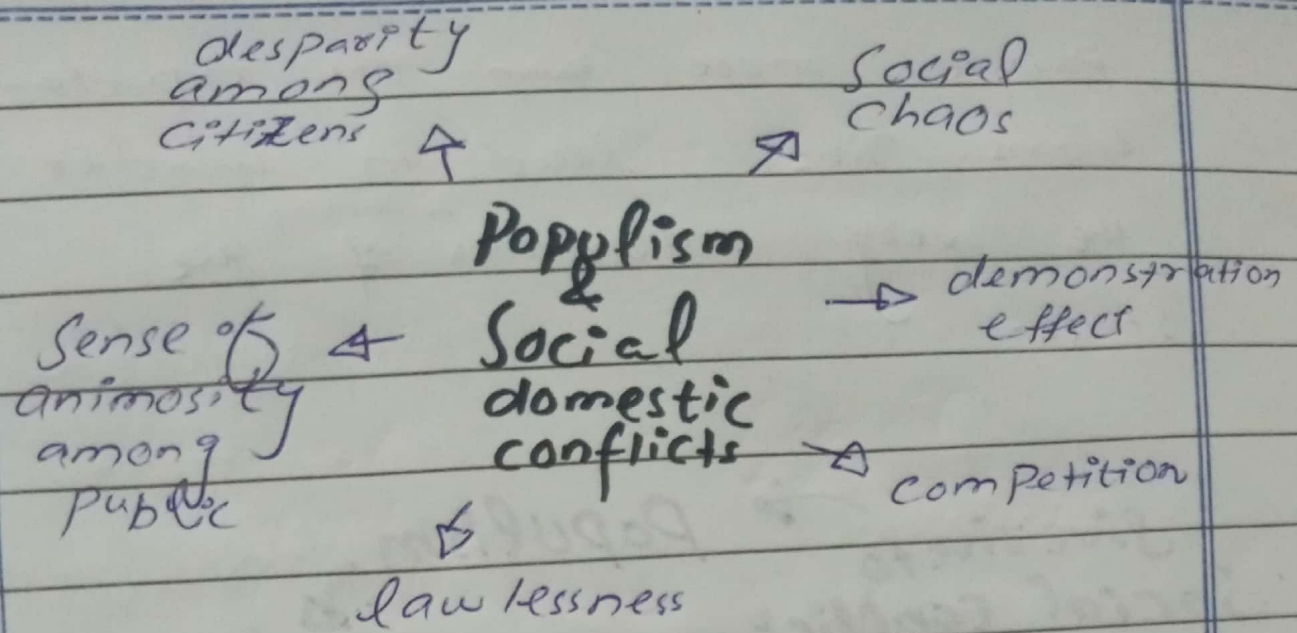 desparity
among
citizens
Social
chaos
Populism
&
Social
domestic
conflicts
demonstration
effect
Sense of
animosity
among
public
competition
lawlessness